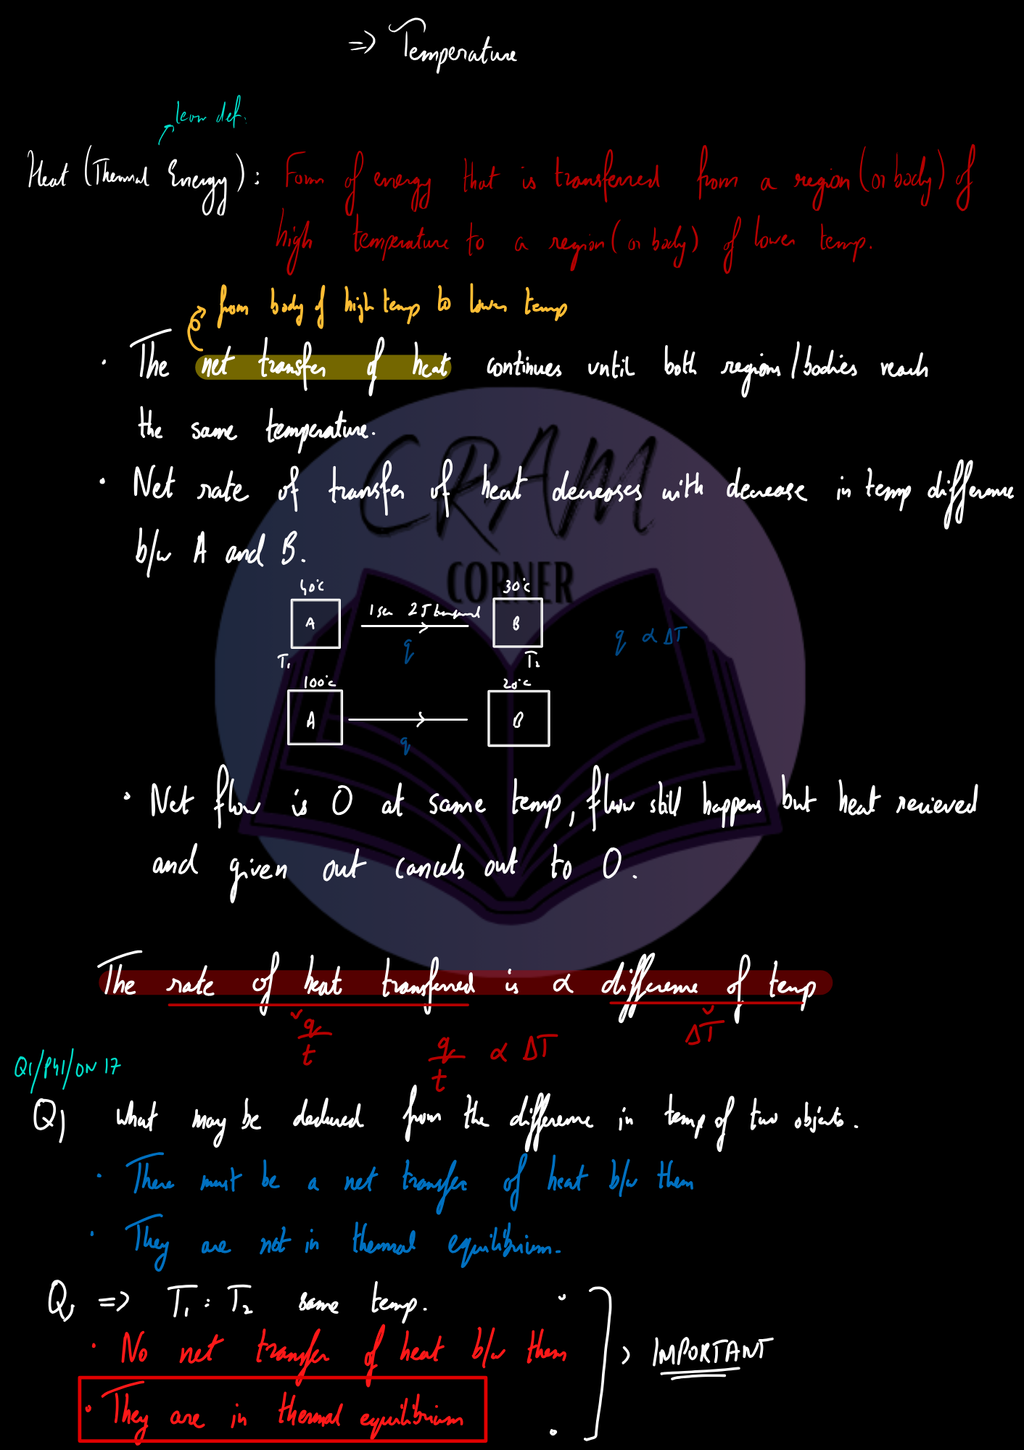 => Temperature
learn def.
Heat (Thermal Energy) : Form of energy that is transferred from a region (or body) of
high temperature to a region (or body) of lower temp.
from body of high temp to lower temp
• The net transfer of heat continues until both regions/bodies reach
the same temperature.
• Net rate of transfer of heat decreases with decrease in temp difference
b/w A and B.
CRAM
CORNER
40°C 30°C
A 1 sec 2J B
q q α ΔT
T₁ T₂
100°C 20°C
A B
q
• Net flow is 0 at same temp, flow still happens but heat recieved
and given out cancels out to 0.
The rate of heat transferred is α difference of temp
q/t q/t α ΔT ΔT
Q1/P41/ON 17
Q) what may be deduced from the difference in temp of two objects.
• There must be a net transfer of heat b/w them
• They are not in thermal equilibrium.
Q, => T₁ = T₂ same temp.
• No net transfer of heat b/w them
IMPORTANT
• They are in thermal equilibrium